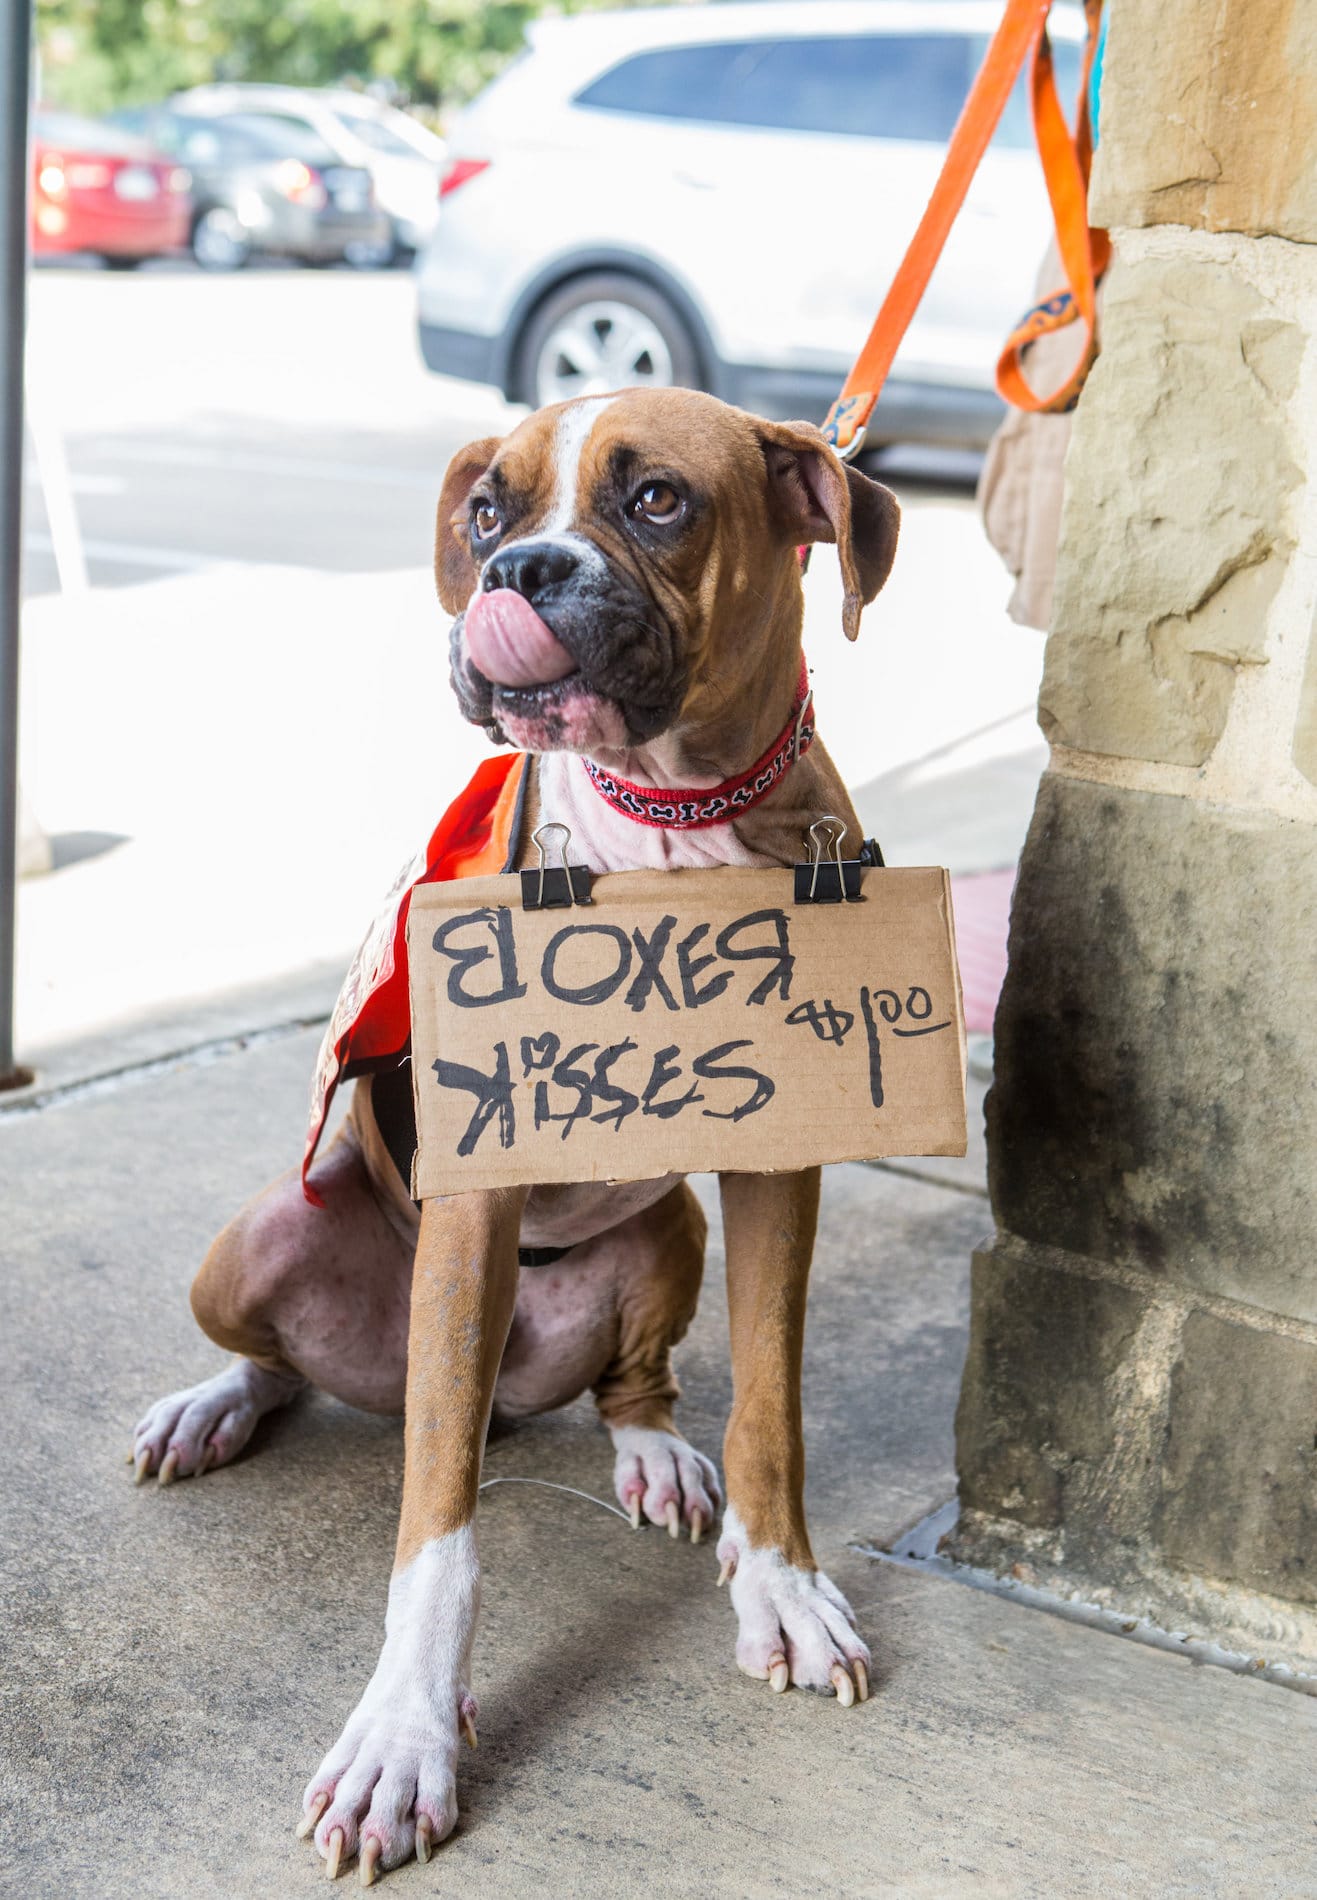 BOXER
KISSES $1.00